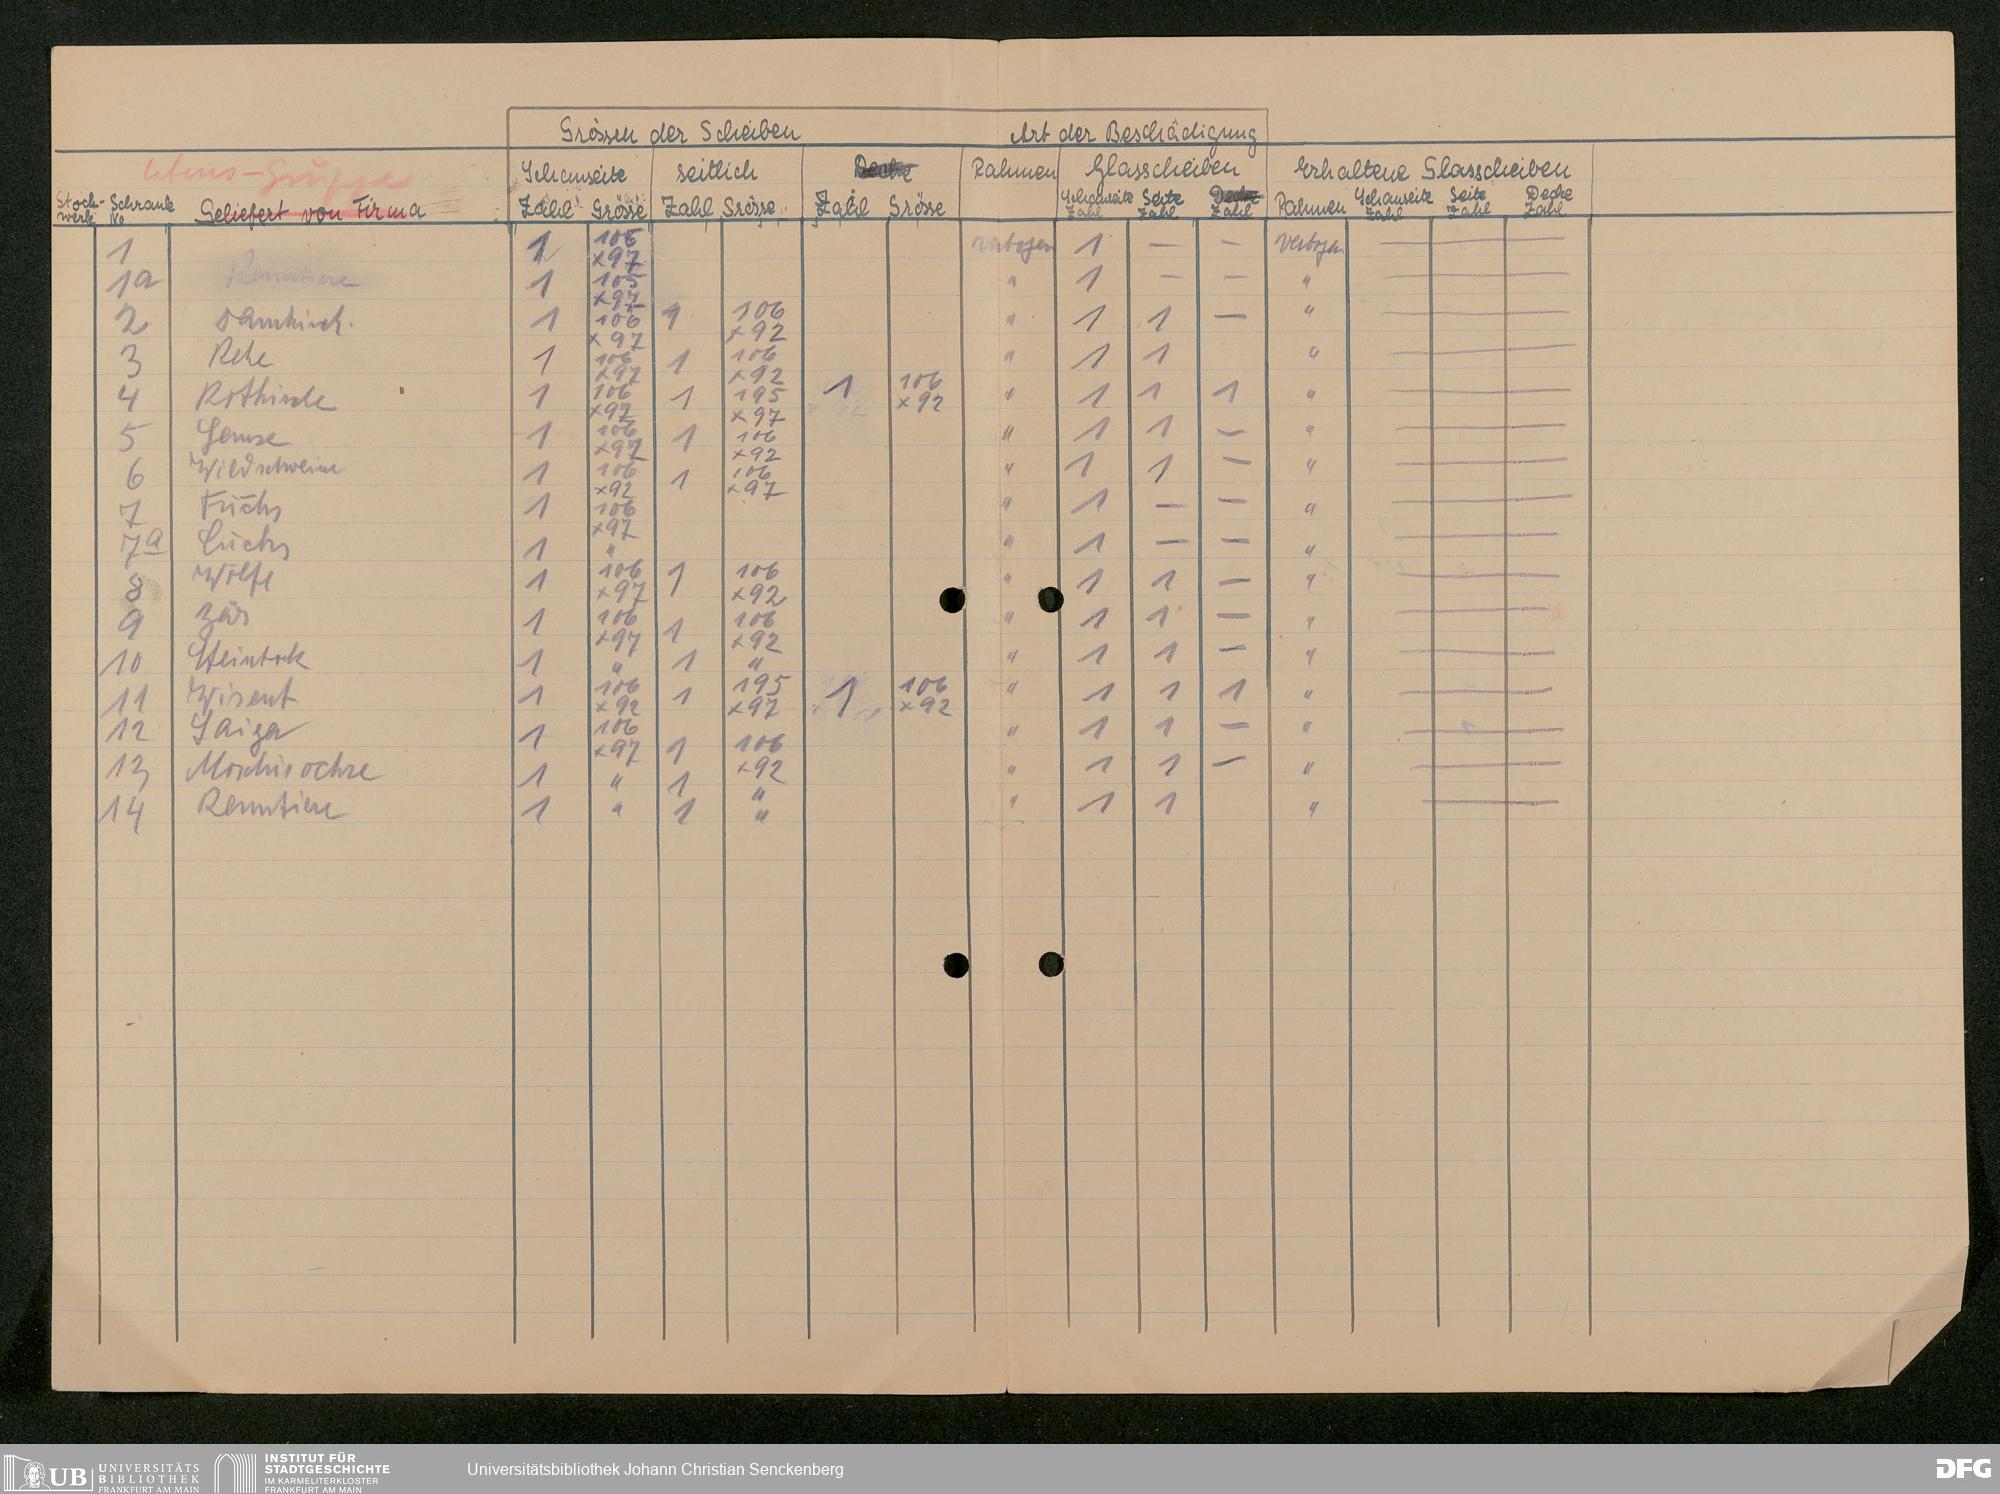 Grössen der Scheiben Art der Beschädigung
Lebens-Gruppe Schauseite seitlich Decke Rahmen Glasscheiben Erhaltene Glasscheiben
Stock- Schrank Geliefert von Firma Zahl Grösse Zahl Grösse Zahl Grösse Schauseite Seite Decke Rahmen Schauseite Seite Decke
werk № Zahl Zahl Zahl Zahl Zahl Zahl
1 1 106 x97 verbogen 1 — — verbogen —
1a Renntiere 1 105 x97 " 1 — — " —
2 Damhirsch. 1 106 x97 1 106 x92 " 1 1 — " —
3 Rehe 1 106 x97 1 106 x92 " 1 1 " —
4 Rothirsche 1 106 x92 1 195 x97 1 106 x92 " 1 1 1 " —
5 Gemse 1 106 x97 1 106 x92 " 1 1 — " —
6 Wildschweine 1 106 x92 1 106 x97 " 1 1 — " —
7 Fuchs 1 106 x97 " 1 — — " —
7a Luchs 1 " " 1 — — " —
8 Wölfe 1 106 x97 1 106 x92 " 1 1 — " —
9 Bär 1 106 x97 1 106 x92 " 1 1 — " —
10 Steinbock 1 " 1 " " 1 1 — " —
11 Wisent 1 106 x92 1 195 x97 1 106 x92 " 1 1 1 " —
12 Saiga 1 106 x97 1 106 x92 " 1 1 — " —
13 Moschusochse 1 " 1 " " 1 1 — " —
14 Renntiere 1 " 1 " " 1 1 " —
UB UNIVERSITÄTS BIBLIOTHEK FRANKFURT AM MAIN
INSTITUT FÜR STADTGESCHICHTE IM KARMELITERKLOSTER FRANKFURT AM MAIN
Universitätsbibliothek Johann Christian Senckenberg
DFG